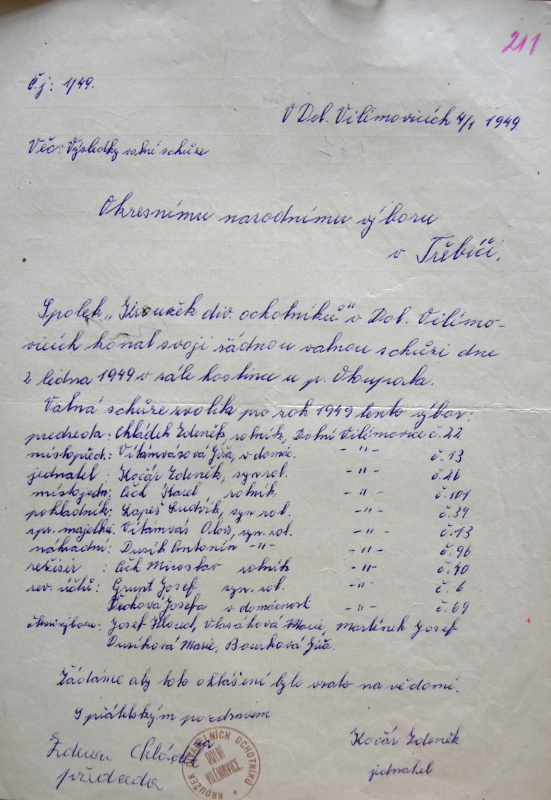 211
Č.j: 1/49.
V Dol. Vilímovicích 4/1 1949.
Věc: Výsledky valné schůze
Okresnímu narodnímu výboru
v Třebíči.
Spolek „Kroužek div. ochotníků" v Dol. Vilímo-
vicích konal svoji řádnou valnou schůzi dne
2 ledna 1949 v sále hostince u p. Chupada.
Valná schůze zvolila pro rok 1949 tento výbor:
předseda: Chládek Zdeněk, rolník, Dolní Vilímovice č. 22
místopřed: Vítámvásová Jiřa, v domác. -"- č. 13
jednatel: Kočár Zdeněk, syn rol. -"- č. 26
místojedn: Čech Karel, rolník -"- č. 101
pokladník: Ludvík, syn rol. -"- č. 39
spr. majetku: Vítámvás Alois, syn rol. -"- č. 13
náhradní: Dusík Antonín -"- -"- č. 96
režisér: Čech Miroslav rolník -"- č. 40
rev. účtů: Grunt Josef syn rol. -"- č. 6
Čechová Josefa v domácnosti -"- č. 69
členi výboru: Josef Vlasáková Marie, Martínek Josef
Dusíková Marie, Bourková Jiřa.
Žádáme aby toto ohlášení bylo vzato na vědomí.
S přátelským pozdravem
Zdeněk Chládek
předseda
Kočár Zdeněk
jednatel
KROUŽEK DIVADELNÍCH OCHOTNÍKŮ
DOLNÍ
VILÉMOVICE.